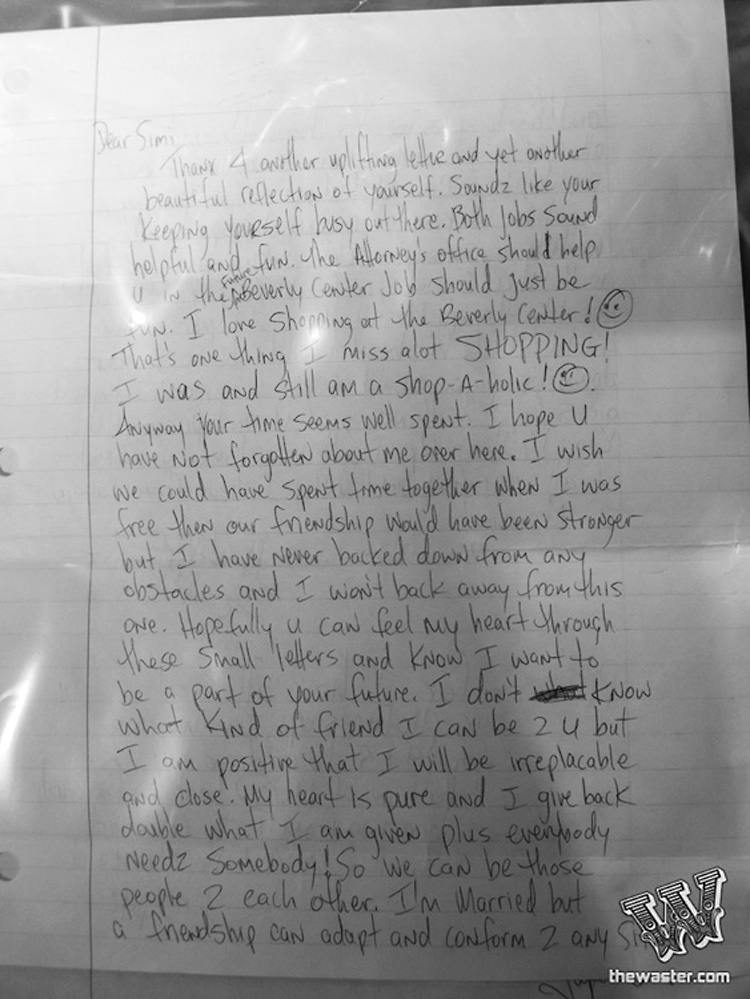 Dear Simi
Thanx 4 another uplifting letter and yet another
beautiful reflection of yourself. Soundz like your
keeping yourself busy out there. Both jobs sound
helpful and fun. The Attorney's office should help
U in the future Beverly Center Job should just be
fun. I love shopping at the Beverly Center!
That's one thing I miss alot SHOPPING!
I was and still am a shop-A-holic!
Anyway your time seems well spent. I hope U
have not forgotten about me over here. I wish
we could have spent time together when I was
free then our friendship would have been stronger
but I have never backed down from any
obstacles and I won't back away from this
one. Hopefully u can feel my heart through
these small letters and know I want to
be a part of your future. I don't know
what kind of friend I can be 2 u but
I am positive that I will be irreplacable
and close. My heart is pure and I give back
double what I am given plus everybody
needz somebody! So we can be those
people 2 each other. I'm married but
a friendship can adapt and conform 2 any
W
thewaster.com